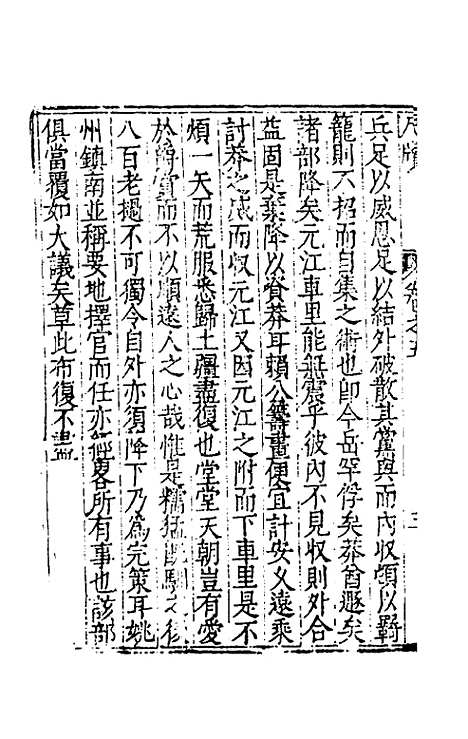 尺牘 卷之五 三
兵足以威恩足以結外破散其黨與而內收頃以羇
籠則不招而自集之術也即今岳罕俘矣莽酋遯矣
諸部降矣元江車里能無震乎彼內不見收則外合
益固是棄降以資莽耳賴公籌畫便宜計安乂遠乘
討莽之威而収元江又因元江之附而下車里是不
煩一矢而荒服悉歸土疆盡復也堂堂天朝豈有愛
於爵賞而不以順遠人之心哉惟是糯猛既馴之後
八百老撾不可獨令自外亦須降下乃為完策耳姚
州鎮南並稱要地擇官而任亦經畧所有事也該部
俱當覆如大議矣草此布復不盡